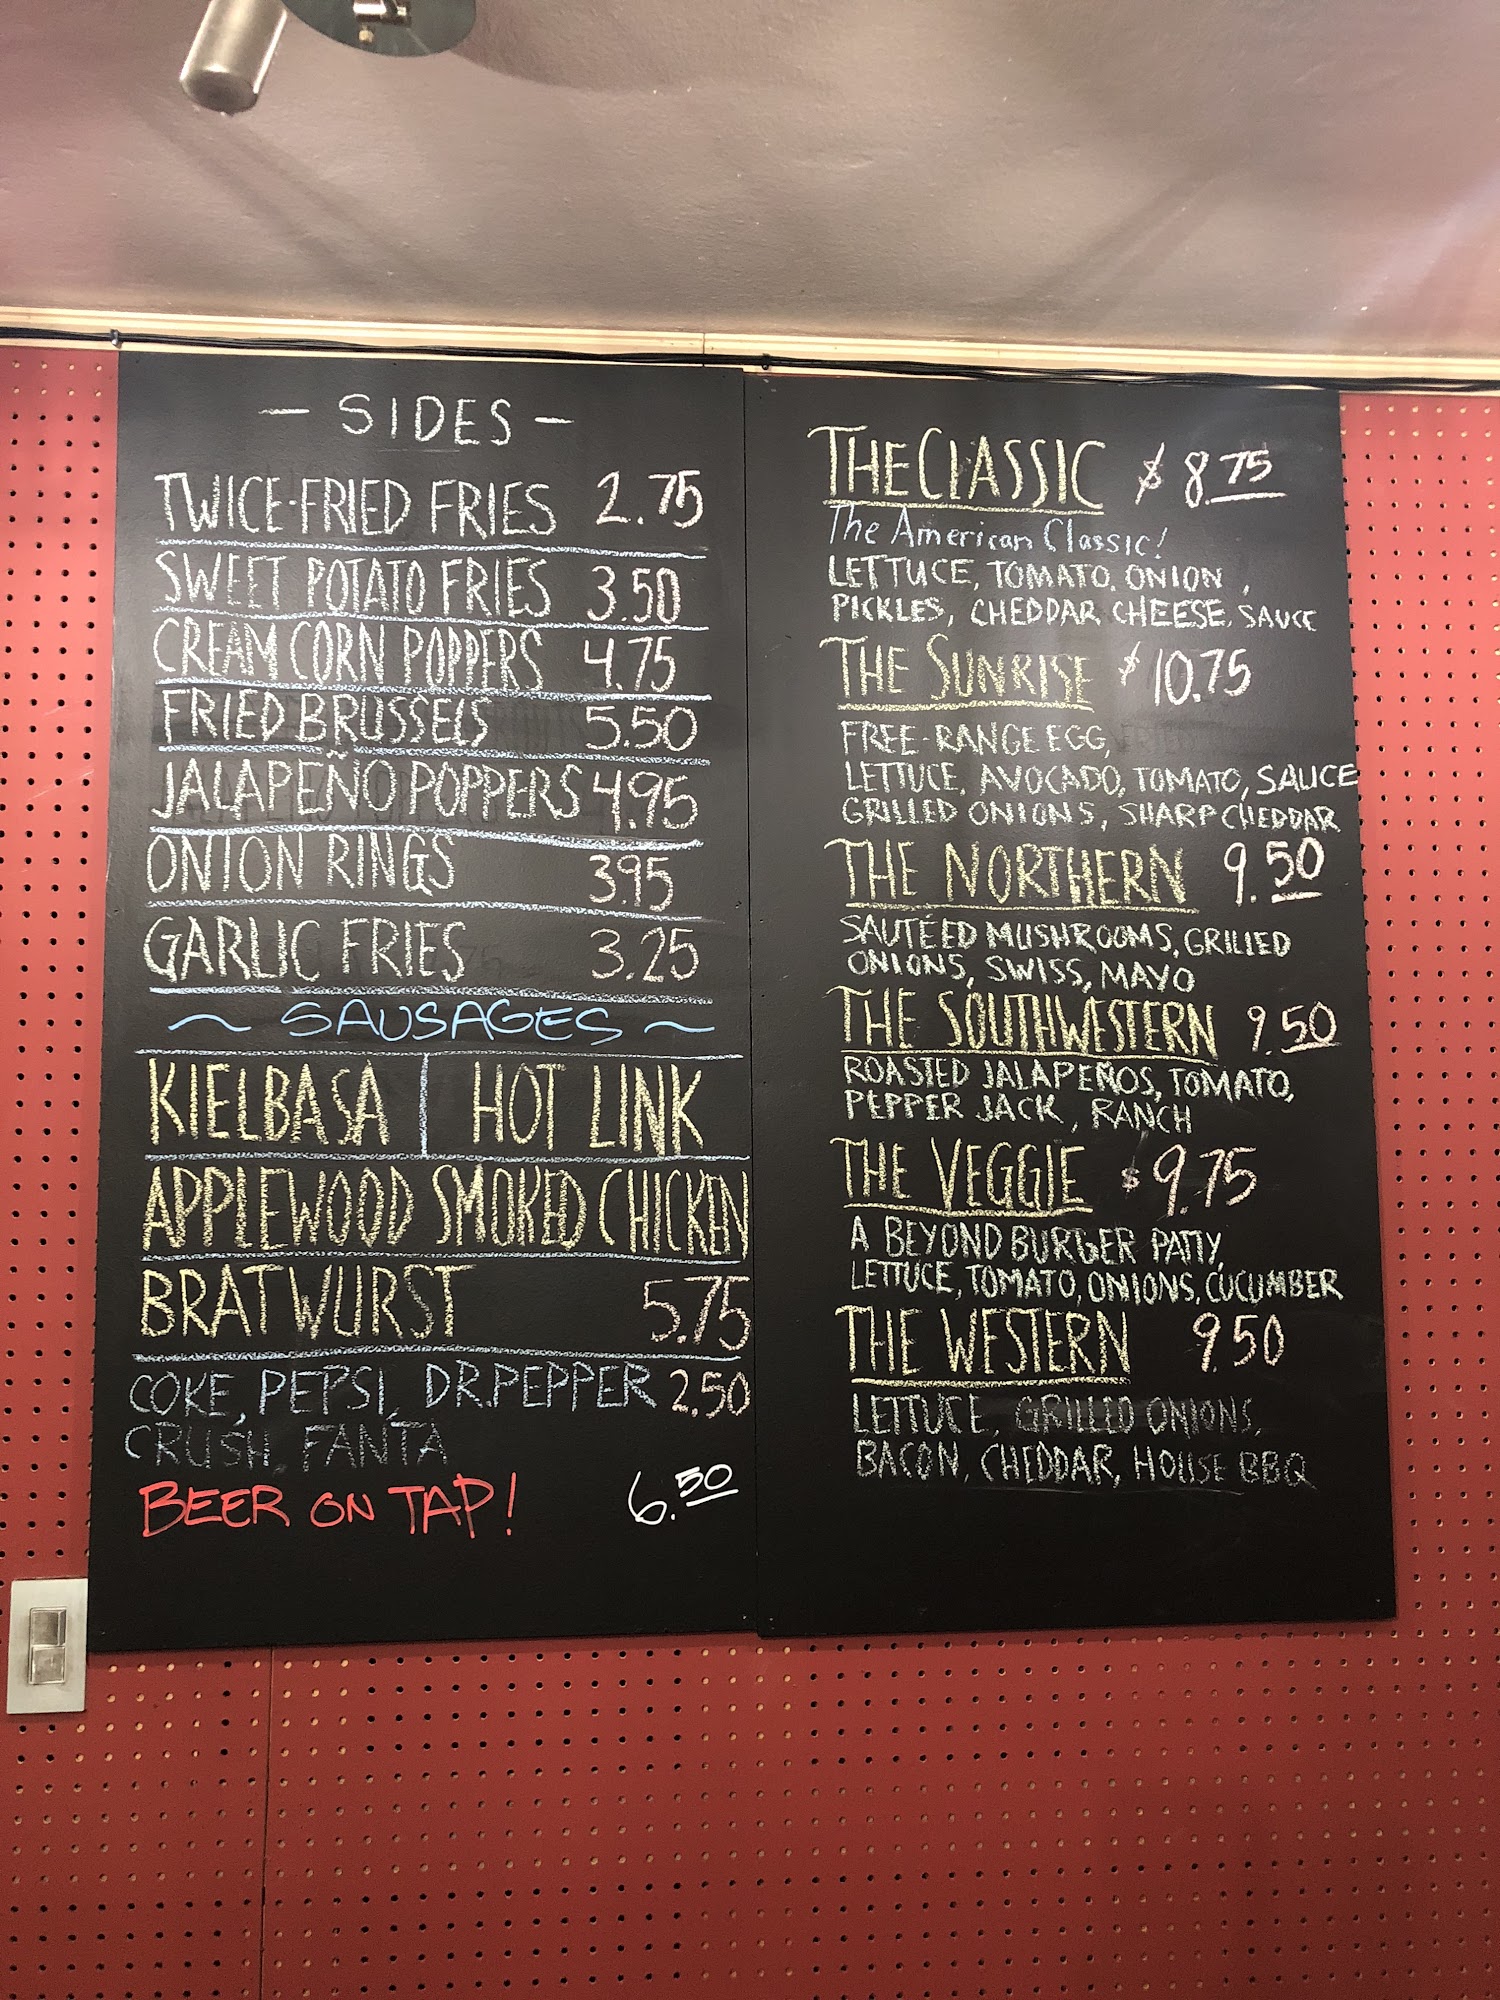 - SIDES -
TWICE-FRIED FRIES 2.75
SWEET POTATO FRIES 3.50
CREAM CORN POPPERS 4.75
FRIED BRUSSELS 5.50
JALAPEÑO POPPERS 4.95
ONION RINGS 3.95
GARLIC FRIES 3.25
~ SAUSAGES ~
KIELBASA | HOT LINK
APPLEWOOD SMOKED CHICKEN
BRATWURST 5.75
COKE, PEPSI, DR.PEPPER 2.50
CRUSH, FANTA
BEER ON TAP! 6.50
THE CLASSIC $8.75
The American Classic!
LETTUCE, TOMATO, ONION,
PICKLES, CHEDDAR CHEESE, SAUCE
THE SUNRISE $10.75
FREE-RANGE EGG,
LETTUCE, AVOCADO, TOMATO, SAUCE
GRILLED ONIONS, SHARP CHEDDAR
THE NORTHERN 9.50
SAUTÉED MUSHROOMS, GRILLED
ONIONS, SWISS, MAYO
THE SOUTHWESTERN 9.50
ROASTED JALAPEÑOS, TOMATO,
PEPPER JACK, RANCH
THE VEGGIE $9.75
A BEYOND BURGER PATTY,
LETTUCE, TOMATO, ONIONS, CUCUMBER
THE WESTERN 9.50
LETTUCE, GRILLED ONIONS,
BACON, CHEDDAR, HOUSE BBQ